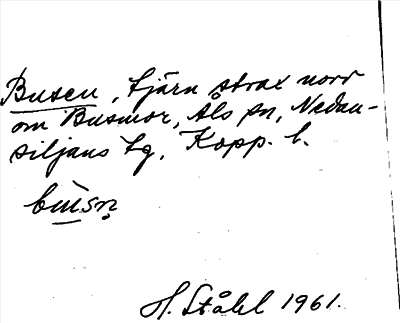 Busen, tjärn strax norr
om Busmor, Åls sn, Nedan-
siljans tg, Kopp. l.
H. Ståhl 1961.